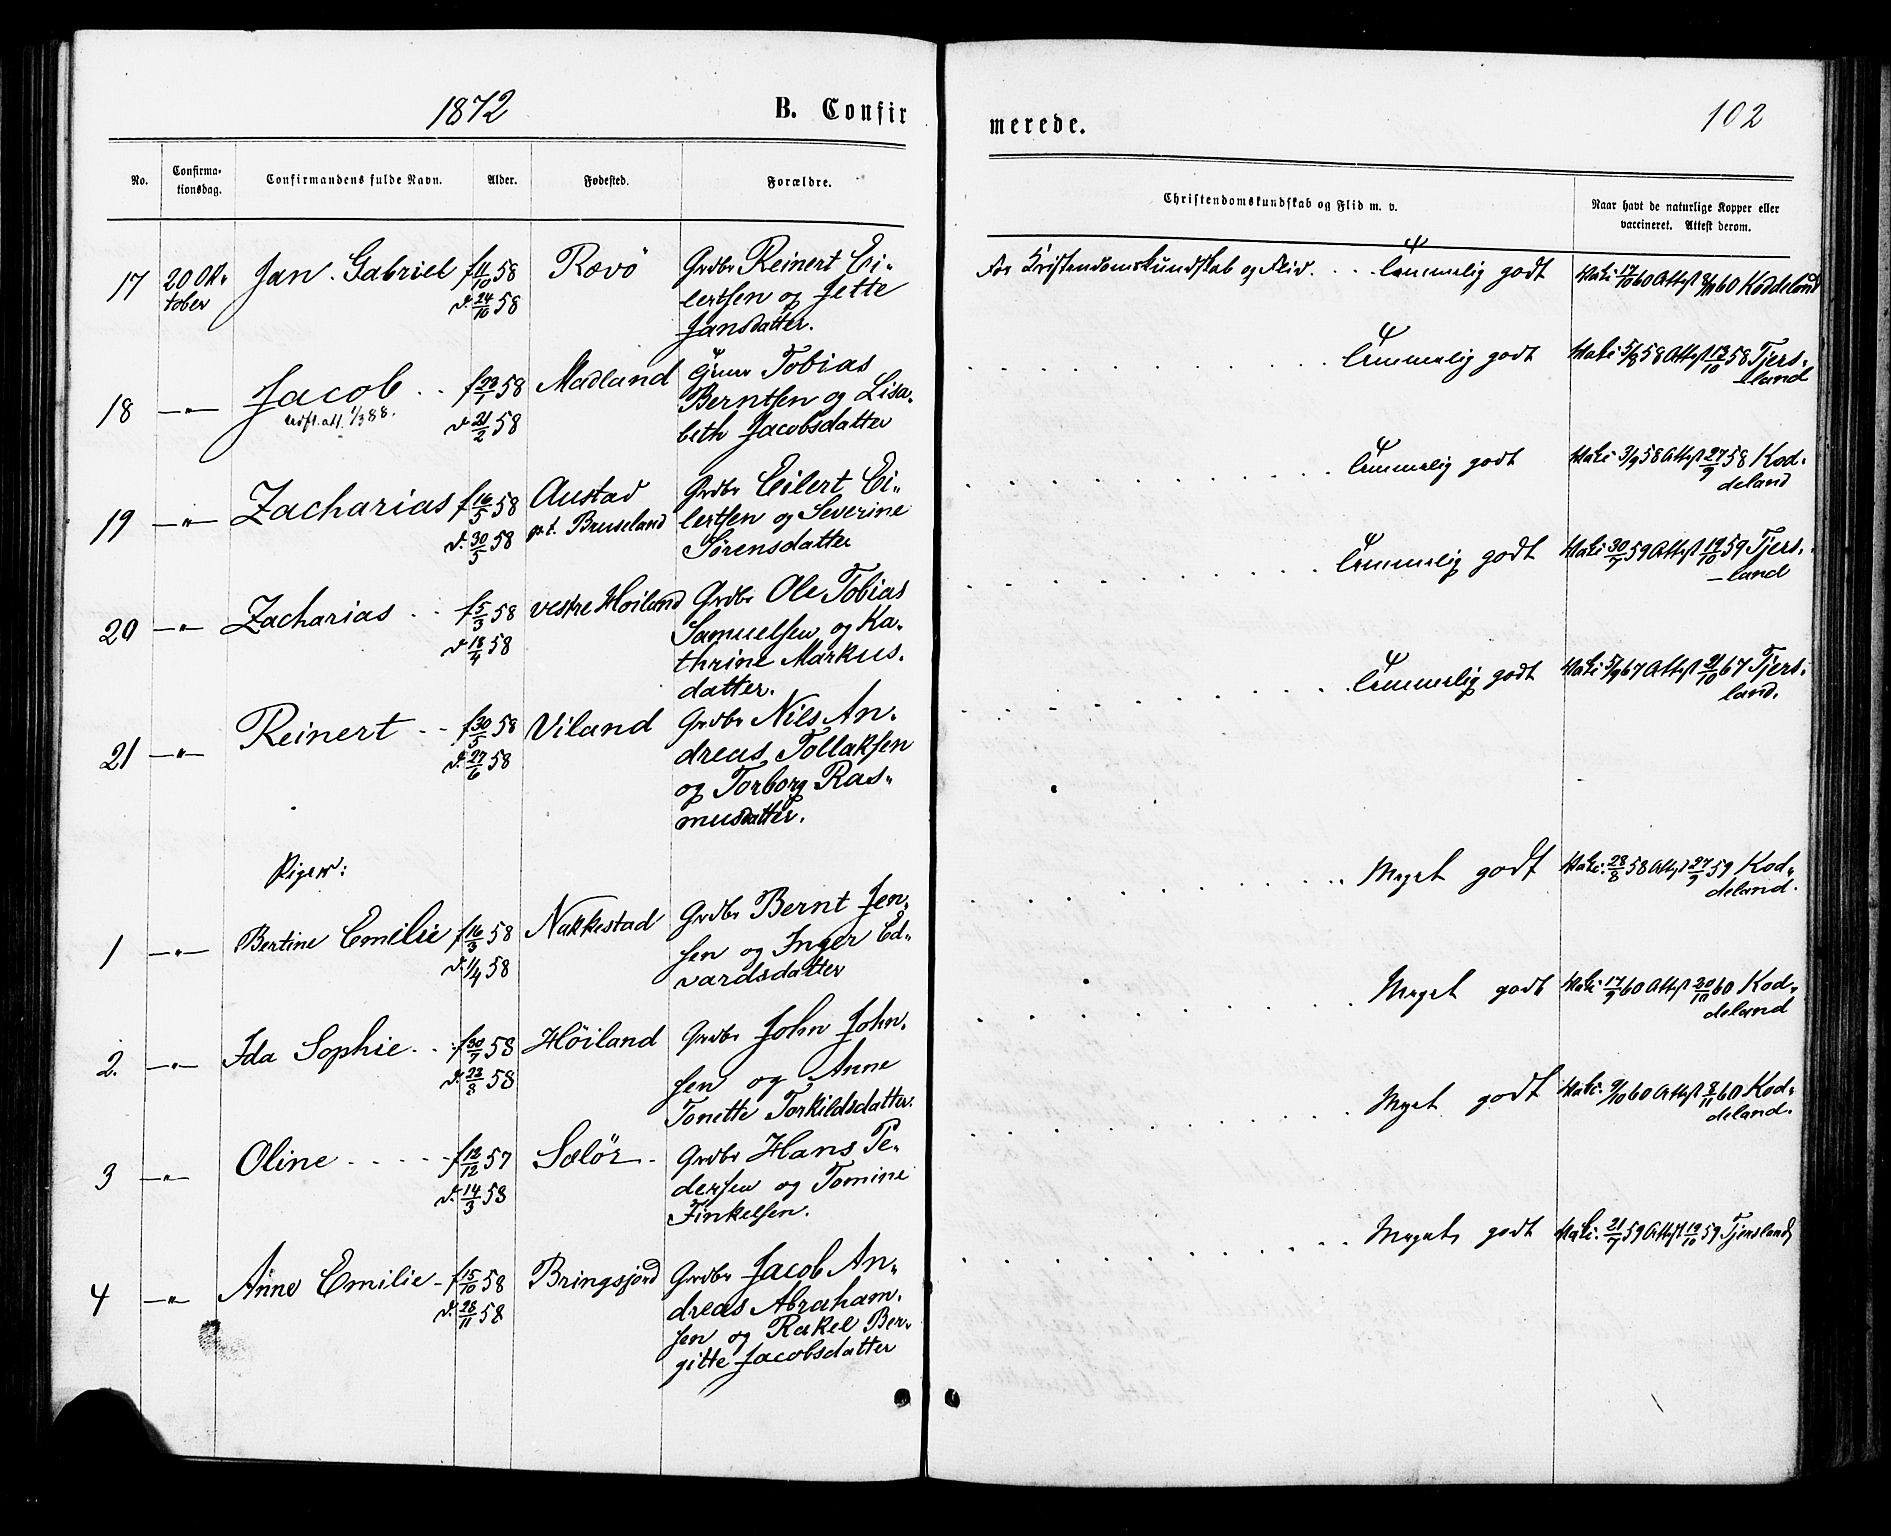 1872
B. Confir
merede.
102
No.
Confirma-
tionsdag.
Confirmandens fulde Navn.
Alder.
Fødested.
Forældre.
Christendomskundskab og Flid m. v.
Naar havt de naturlige Kopper eller
vaccineret. Attest derom.
17 20 Ok-
tober
Jan Gabriel
f. 11/10 58
d. 24/10 58
Rævö
Grdbr Reinert Ei-
lertsen og Jette
Jansdatter.
For Kristendomskundskab og Flid. . . temmelig godt
Vakc 17/10 60 Attest 8/11 60 Koddeland
18 —"— Jacob . .
udst. att. 1/3 88.
f 22/1 58
d 21/2 58
Madland
Tobias
Berntsen og Lisa-
beth Jacobsdatter
temmelig godt
Vakc 5/8 58 Attest 12/10 58 Tjers-
land
19 —"— Zacharias
f 16/5 58
d. 30/5 58
Austad
pt. Bruseland
Grdbr Eilert Ei-
lertsen og Severine
Sörensdatter
temmelig godt
Vakc 3/9 58 Attest 27/9 58 Kod-
deland
20 —"— Zacharias . .
f 5/3 58
d 18/4 58
vestre Höiland
Grdbr Ole Tobias
Samuelsen og Ka-
thrine Markus-
datter.
temmelig godt
Vakc 30/7 59 Attest 19/10 59 Tjers-
land
21 —"— Reinert . .
f 30/5 58
d. 27/6 58
Viland
Grdbr Nils An-
dreas Tollaksen
og Torborg Ras-
musdatter.
temmelig godt
Vakc 5/9 67 Attest 21/10 67 Tjers-
land.
Piger:
1 —"— Bertine Emilie
f 16/3 58
d. 1/4 58
Nakkestad
Grdbr Bernt Jen-
sen og Inger Ed-
vardsdatter
Meget godt
Vakc. 28/8 58 Attest 27/9 59 Kod-
deland.
2. —"— Ida Sophie . .
f 30/7 58
d. 22/8 58
Höiland
Grdbr John John-
sen og Anne
Tonette Torkildsdatter.
Meget godt
Vakc. 17/9 60 Attest 20/10 60 Kod-
deland
3 —"— Oline . . . . .
f 12/12 57
d. 14/3 58
Selör
Grdbr Hans Pe-
dersen og Tomine
Finkelsen.
Meget godt
Vakc. 9/10 60 Attest 8/11 60 Kod-
deland.
4 —"— Anne Emilie -
f 15/10 58
d. 28/11 58
Bringsjord
Grdbr Jacob An-
dreas Abraham-
sen og Rakel Ber-
gitte Jacobsdatter
Meget godt
Vakc. 21/7 59 Attest 19/10 59 Tjersland